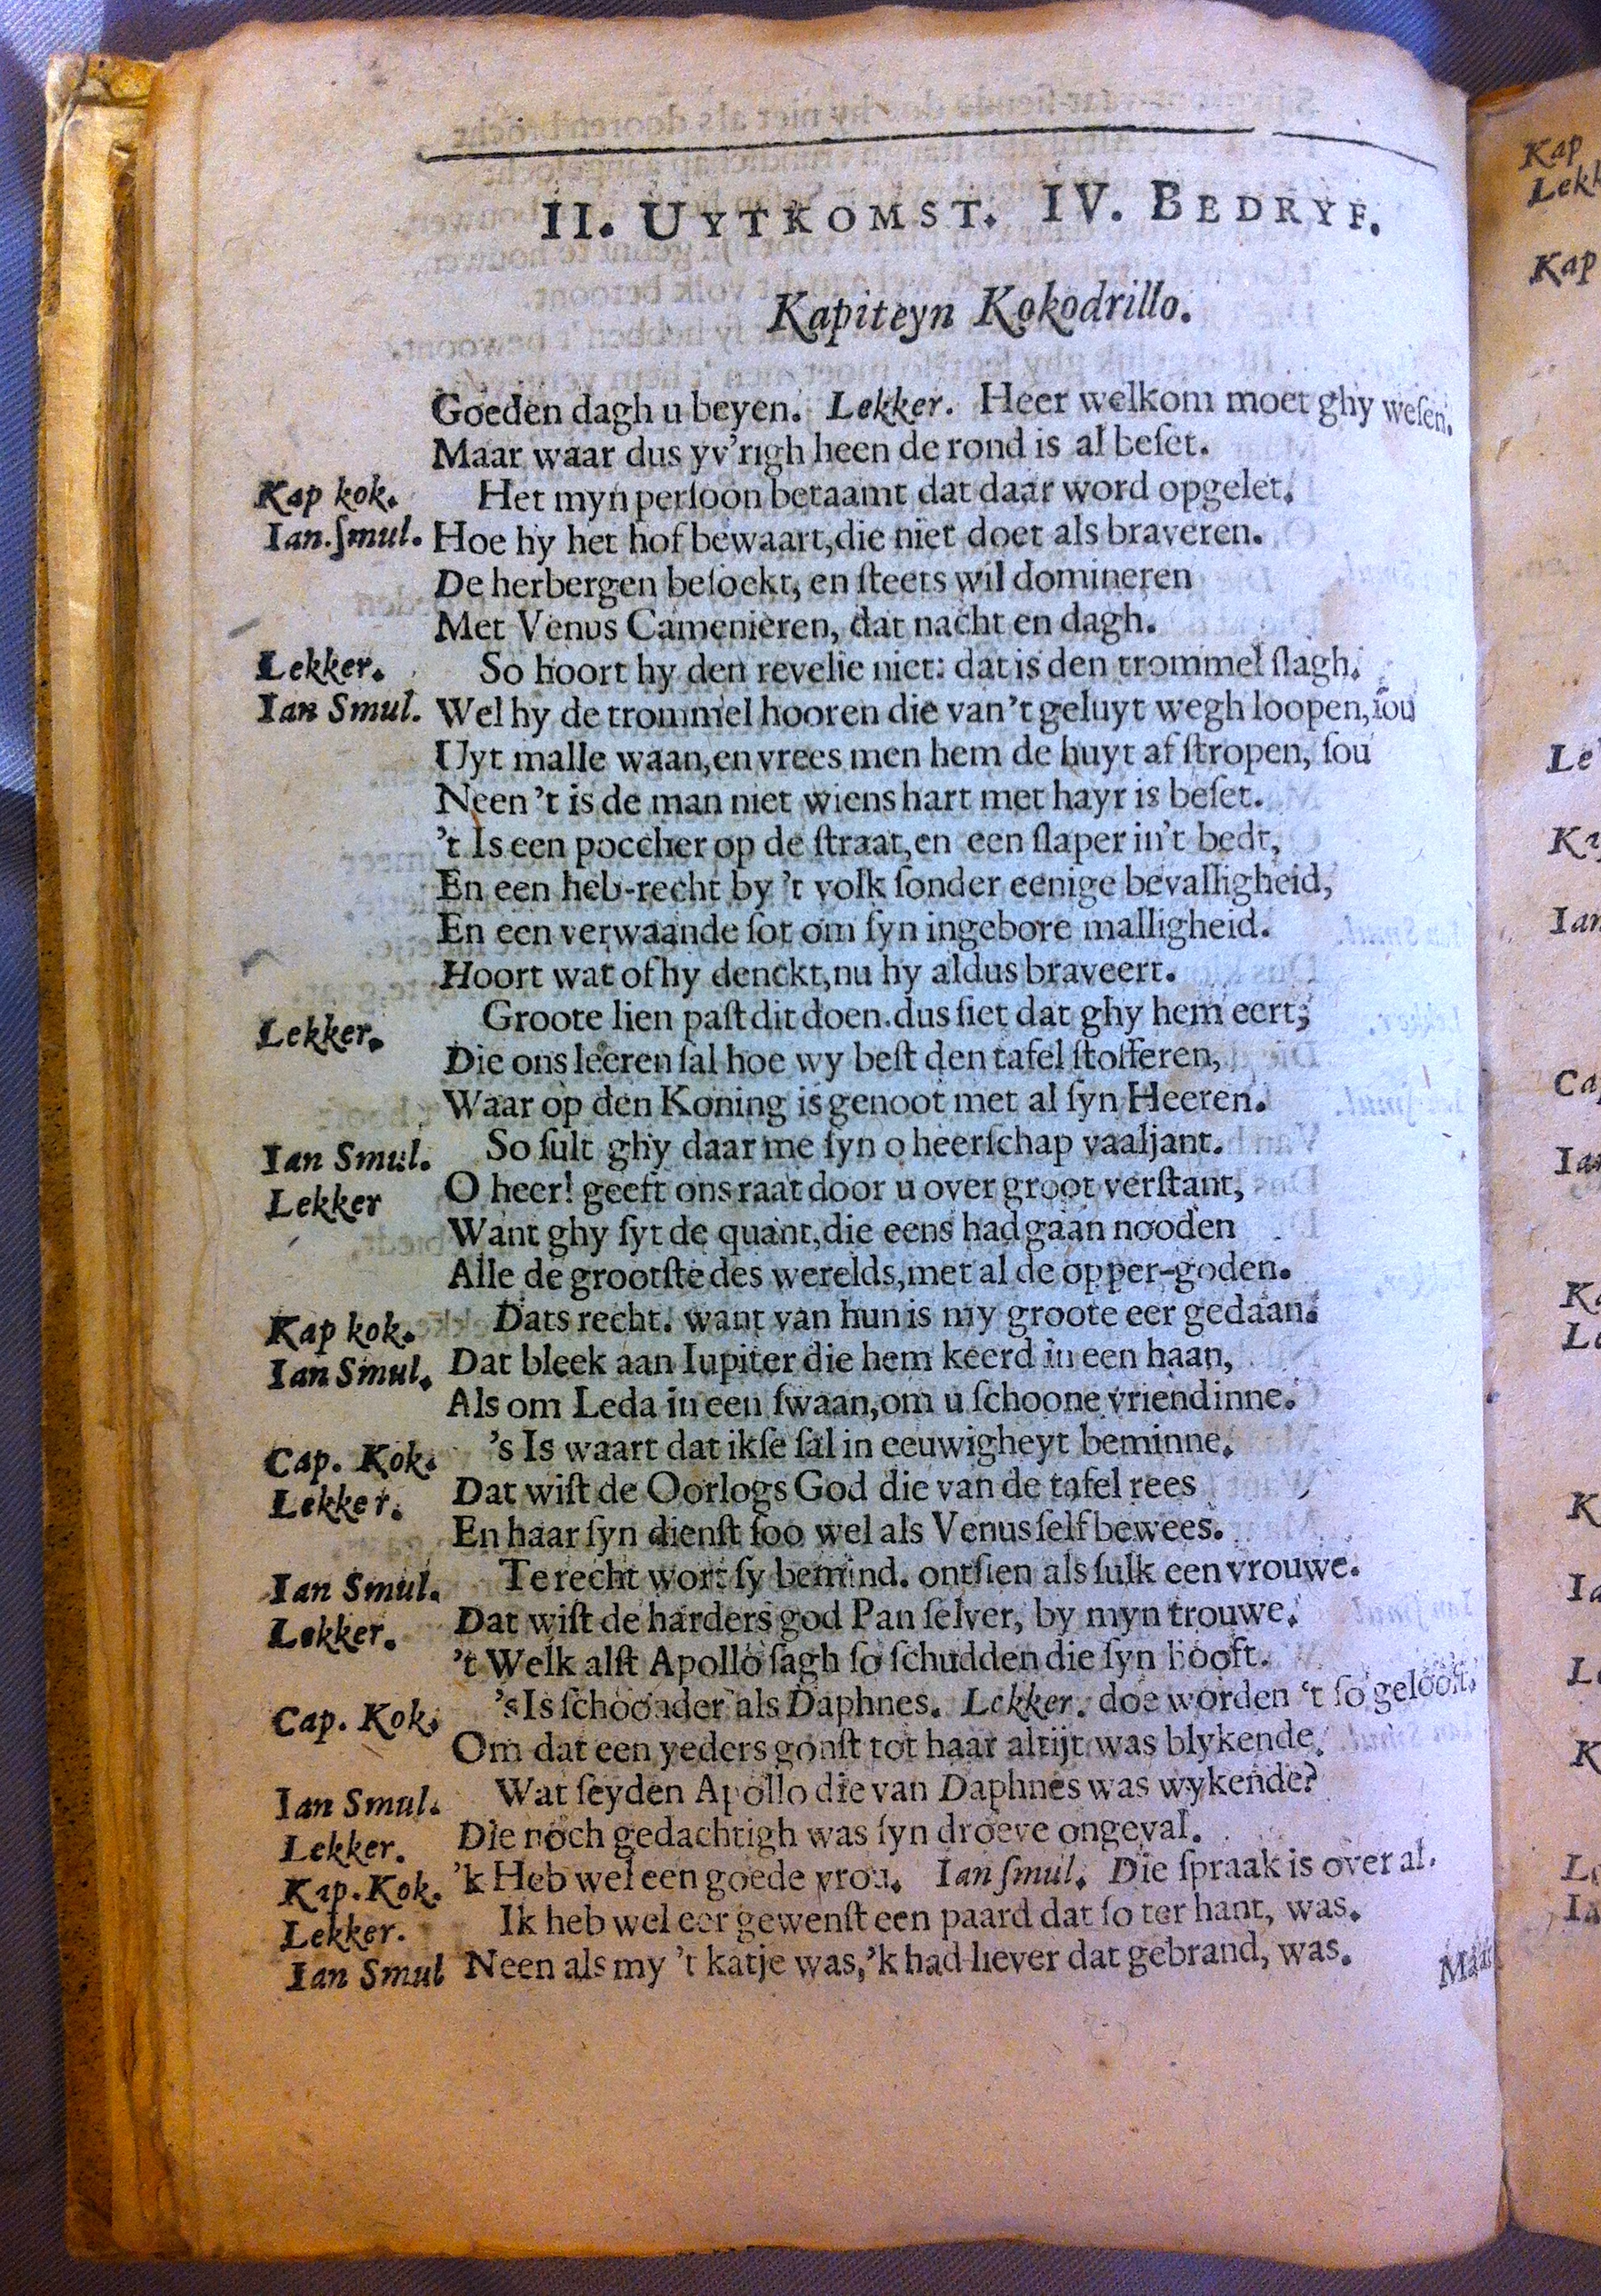 II. UYTKOMST. IV. BEDRYF.
Kapiteyn Kokodrillo.
Goeden dagh u beyen. Lekker. Heer welkom moet ghy weſen.
Maar waar dus yv’righ heen de rond is al beſet.
Kap kok. Het myn perſoon betaamt dat daar word opgelet.
Ian.ſmul. Hoe hy het hof bewaart,die niet doet als braveren.
De herbergen beſoekt, en ſteets wil domineren
Met Venus Camenieren, dat nacht en dagh.
Lekker. So hoort hy den revelie niet: dat is den trommel ſlagh.
Ian Smul. Wel hy de trommel hooren die van’t geluyt wegh loopen,ſou
Uyt malle waan,en vrees men hem de huyt af ſtropen, ſou
Neen ’t is de man niet wiens hart met hayr is beſet.
’t Is een poccher op de ſtraat,en een ſlaper in’t bedt,
En een heb-recht by ’t volk ſonder eenige bevalligheid,
En een verwaande ſot om ſyn ingebore malligheid.
Hoort wat of hy denckt,nu hy aldus braveert.
Lekker. Groote lien paſt dit doen.dus ſiet dat ghy hem eert;
Die ons leeren ſal hoe wy beſt den tafel ſtofferen,
Waar op den Koning is genoot met al ſyn Heeren.
Ian Smul. So ſult ghy daar me ſyn o heerſchap vaaljant.
Lekker O heer! geeft ons raat door u over groot verſtant,
Want ghy ſyt de quant,die eens had gaan nooden
Alle de grootſte des werelds,met al de opper-goden.
Kap kok. Dats recht. want van hun is my groote eer gedaan.
Ian Smul. Dat bleek aan Iupiter die hem keerd in een haan,
Als om Leda in een ſwaan,om u ſchoone vriendinne.
Cap. Kok. ’s Is waart dat ikſe ſal in eeuwigheyt beminne.
Lekker. Dat wiſt de Oorlogs God die van de tafel rees
En haar ſyn dienſt ſoo wel als Venus ſelf bewees.
Ian Smul. Te recht wort ſy bemind. ontſien als ſulk een vrouwe.
Lekker. Dat wiſt de harders god Pan ſelver, by myn trouwe.
’t Welk alſt Apollo ſagh ſo ſchudden die ſyn hooft.
Cap. Kok. ’s Is ſchoonder als Daphnes. Lekker. doe worden ‘t ſo gelooft.
Om dat een yeders gonſt tot haar altijt was blykende.
Ian Smul. Wat ſeyden Apollo die van Daphnes was wykende?
Lekker. Die noch gedachtigh was ſyn droeve ongeval.
Kap. Kok. ’k Heb wel een goede vrou. Ian ſmul. Die ſpraak is over al.
Lekker. Ik heb wel eer gewenſt een paard dat ſo ter hant, was.
Ian Smul Neen als my ’t katje was,’k had liever dat gebrand, was.
Maar
Kap
Lekk
Kap
Le
Ian
Ca
Ian
Ka
Le
K
Ia
Le
K
Le
Ia